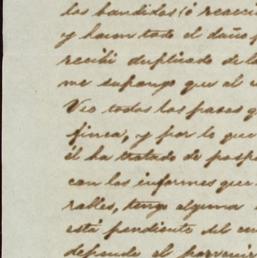 los bandidos (ó reacci
y hacen todo el daño p
recibí duplicado de la
me supongo que el
Veo todos los pasos q
finca, y por lo que
él ha tratado de posp
con los informes que
ralles, tengo alguna
está pendiente del
depende el porvenir